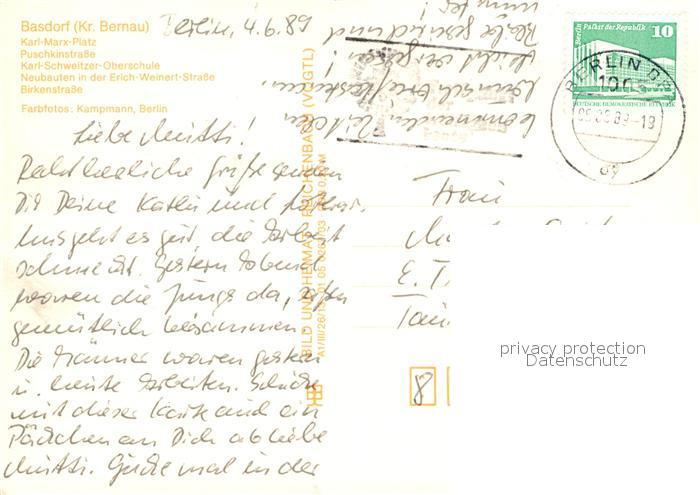 Basdorf (Kr. Bernau)
Karl-Marx-Platz
Puschkinstraße
Karl-Schweitzer-Oberschule
Neubauten in der Erich-Weinert-Straße
Birkenstraße
Farbfotos: Kampmann, Berlin
Berlin, 4.6.89
Liebe Mutti!
Recht herzliche Grüße senden
Dir Deine Katrin und
Uns geht es gut, die Arbeit
schmeckt. Gestern Abend
waren die Jungs da, saßen
gemütlich beisammen.
Die Männer waren gestern
u. heute Arbeiten. Schicke
mit dieser Karte auch ein
Päckchen an Dich ab liebe
Mutti. Gucke mal in der
kommenden Zeit in
Deinen Briefkasten,
nicht vergessen!
Bleibe gesund und
munter!
BILD UND HEIMAT REICHENBACH (VOGTL)
Berlin Palast der Republik
10
DEUTSCHE DEMOKRATISCHE REPUBLIK
BERLIN
Frau
8
privacy protection
Datenschutz